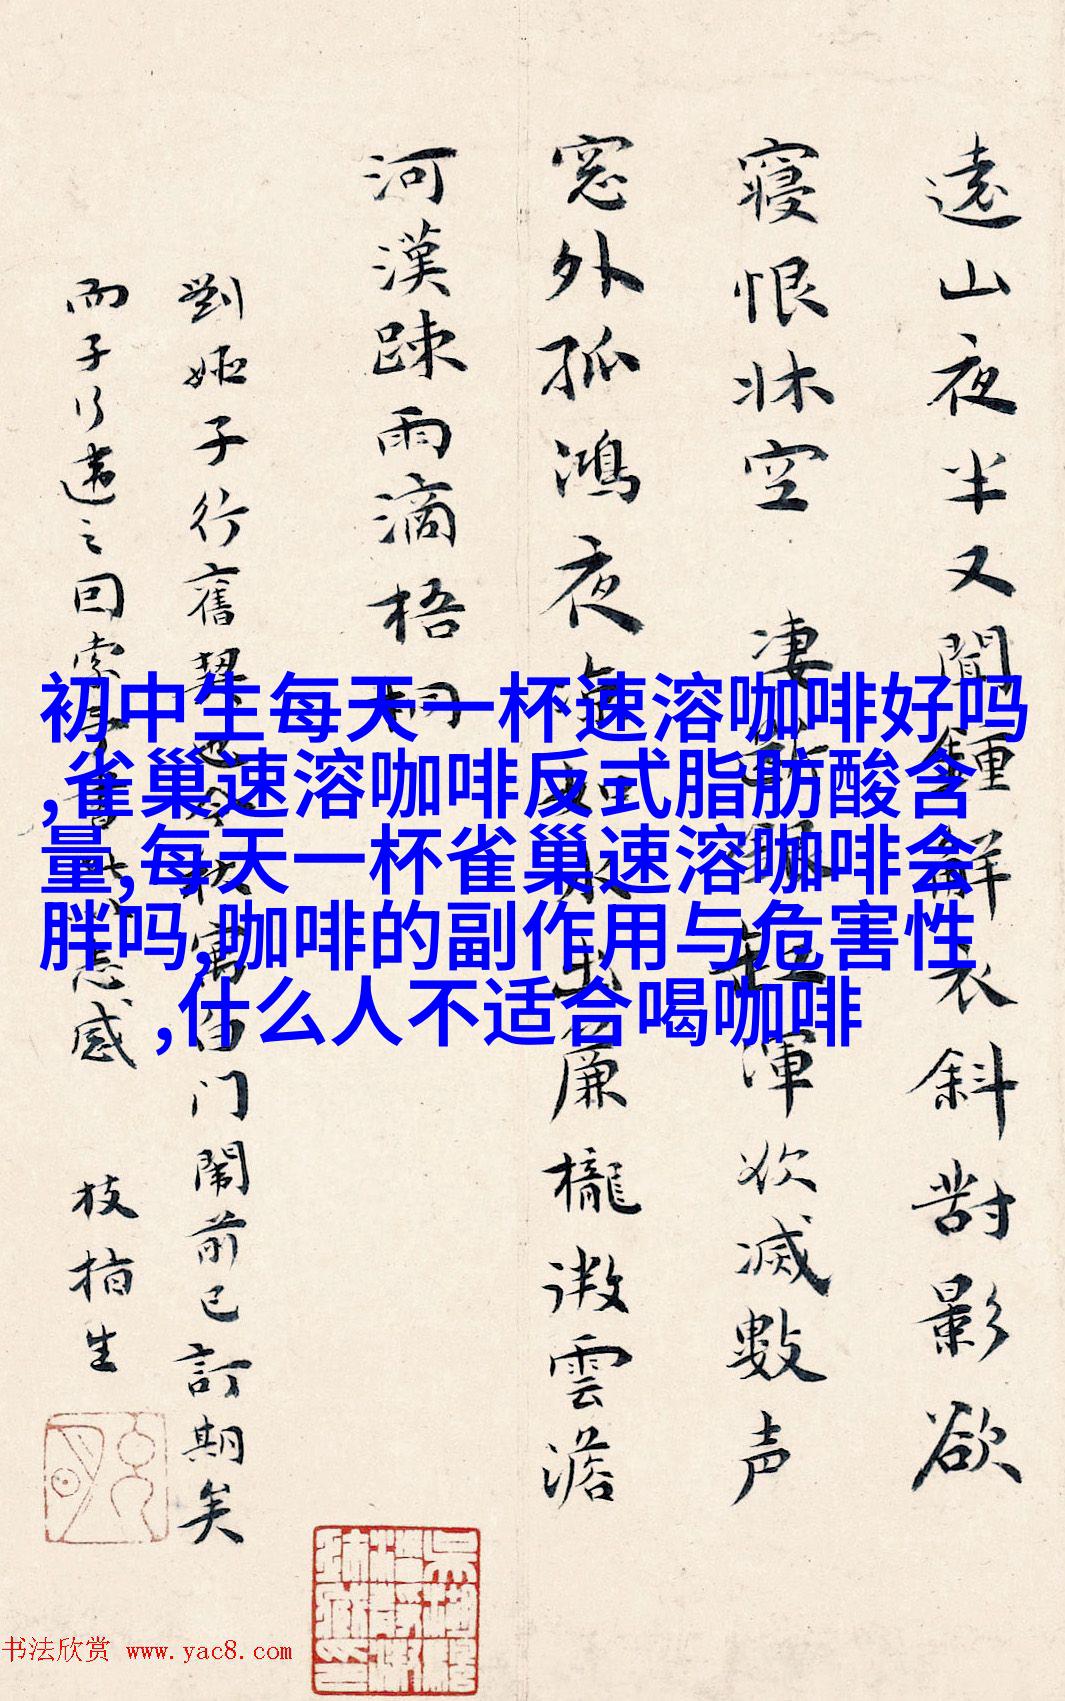 遠山夜半又聞鐘鮮衣斜對影欲
寢恨牀空 凄 渾欲滅數声
窓外孤鴻夜 水出簾櫳微雲澹
河漢踈雨滴梧桐
劉姬子行舊 門閙前已訂期矣
而子行違之回 志感 枝指生
初中生每天一杯速溶咖啡好吗
,雀巢速溶咖啡反式脂肪酸含
量,每天一杯雀巢速溶咖啡会
胖吗,咖啡的副作用与危害性
,什么人不适合喝咖啡
书法欣赏 www.yac8.com